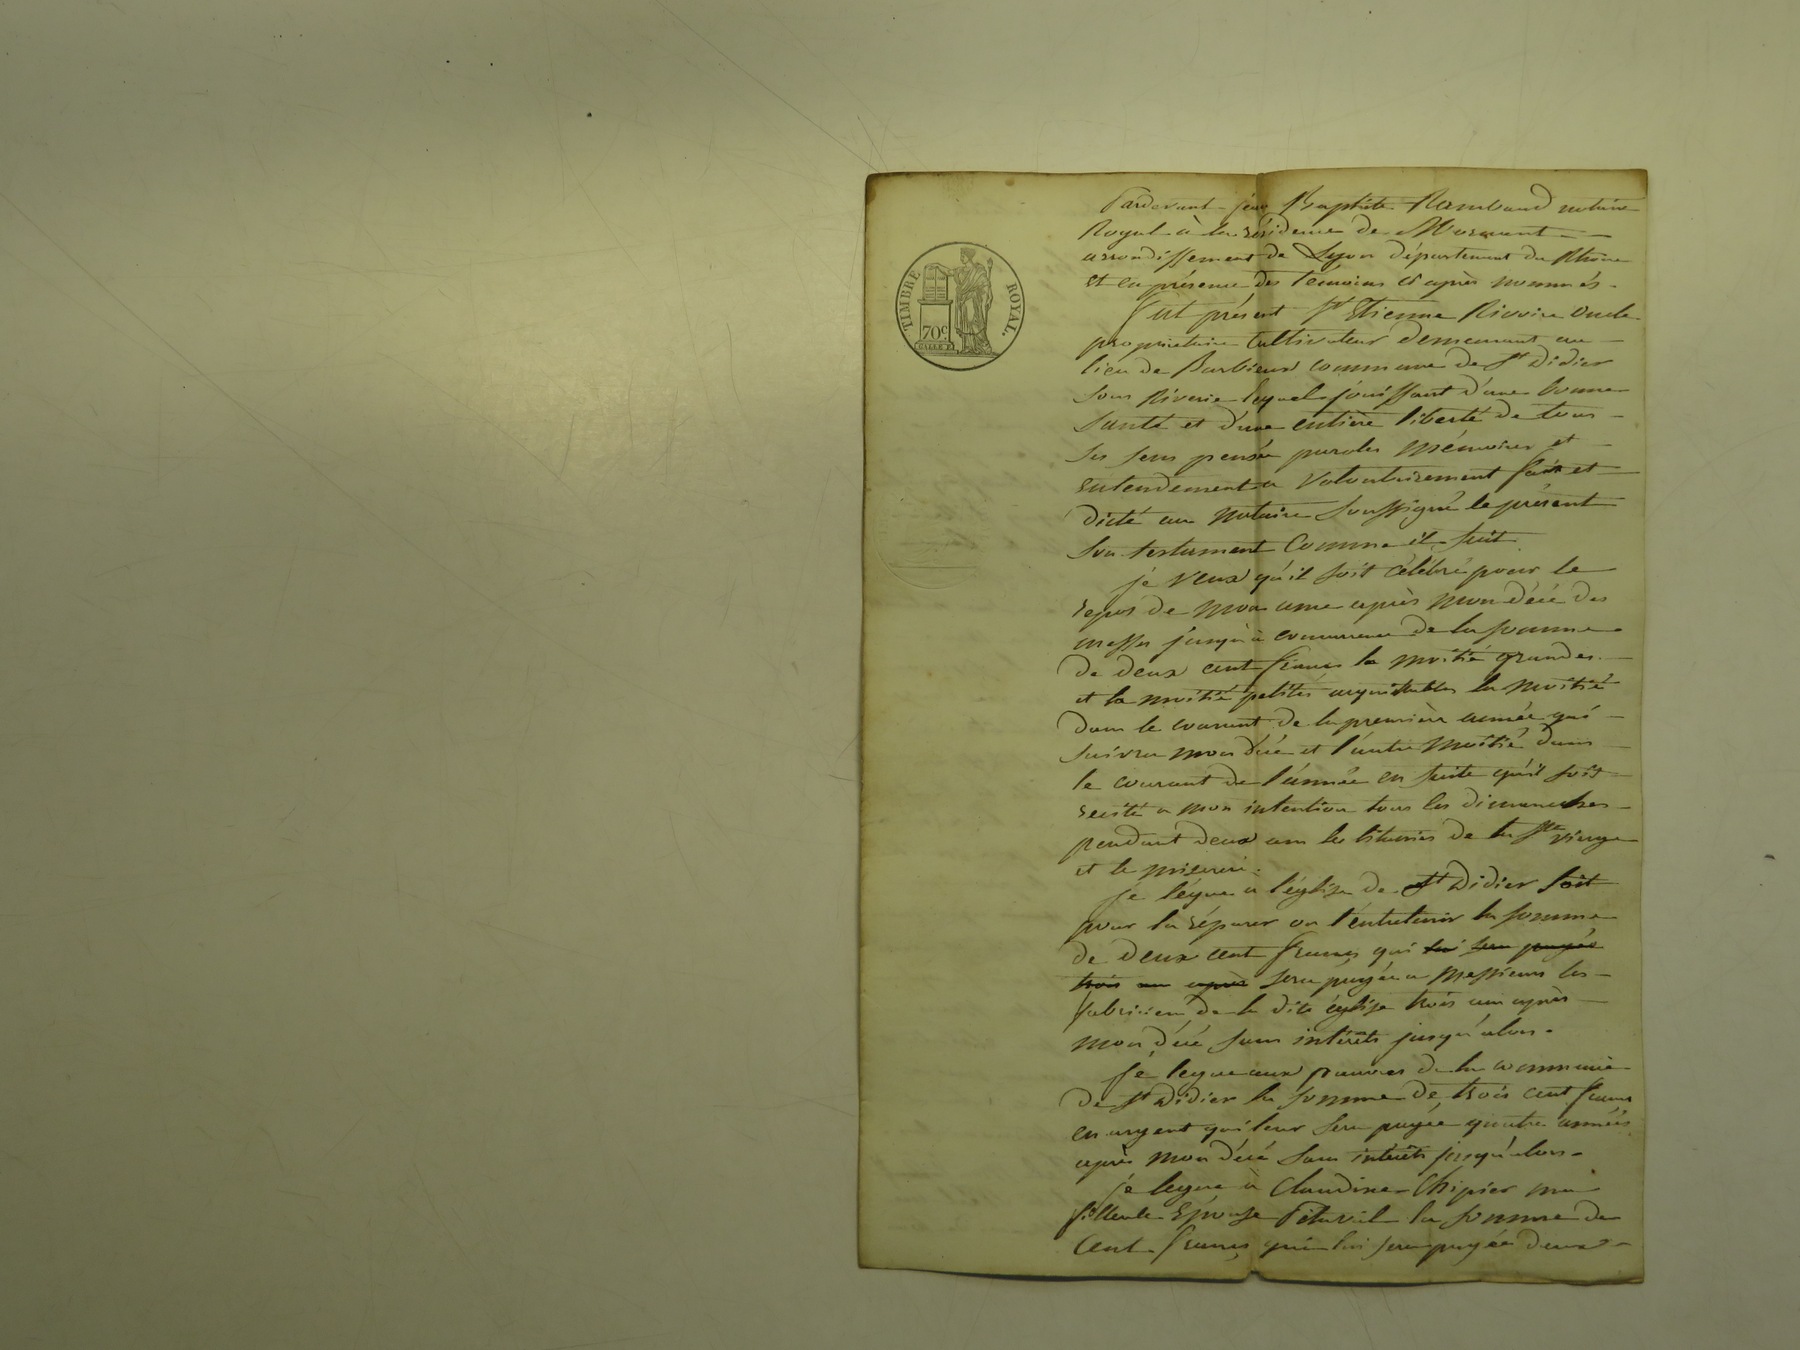 TIMBRE ROYAL.
70c
Pardevant jean Baptiste Rambaud notaire
Royal à la résidence de Mornant
arrondissement de Lyon département du Rhône
et en présence des témoins ci après nommés.
fut présent St Etienne Rivoire Oncle
propriétaire cultivateur demeurant au
lieu de commune de St Didier
sous Riverie lequel jouissant d'une bonne
santé et d'une entière liberté de tous
ses sens pensée paroles mémoires et
entendement a volontairement fait et
dicté au notaire soussigné le présent
son testament comme il suit
je veux qu'il soit célébré pour le
repos de mon ame après mon décé des
messes jusqu'à concurrence de la somme
de deux cent francs la moitié grandes
et la moitié petités acquittables la moitié
dans le courant de la première année qui
suivra mon décé et l'autre moitié dans
le courant de l'année en suite qu'il soit
recité a mon intention tous les dimanches
pendant deux ans les litanies de la Ste vierge
et le
je légue a l'église de St Didier soit
pour la réparer ou l'entretenir la somme
de deux cent francs qui lui sera payée
trois an après sera payée a messieurs les
fabricien de la dite église trois ans après
mon décé sans intérêts jusqu'alors.
je legue aux pauvres de la commune
de St Didier la somme de trois cent francs
en argent qui leur sera payée quatre années
après mon décé sans intérêts jusqu'alors.
je legue à Claudine Chipier ma
filleule Epouse la somme de
Cent francs qui lui sera payée deux